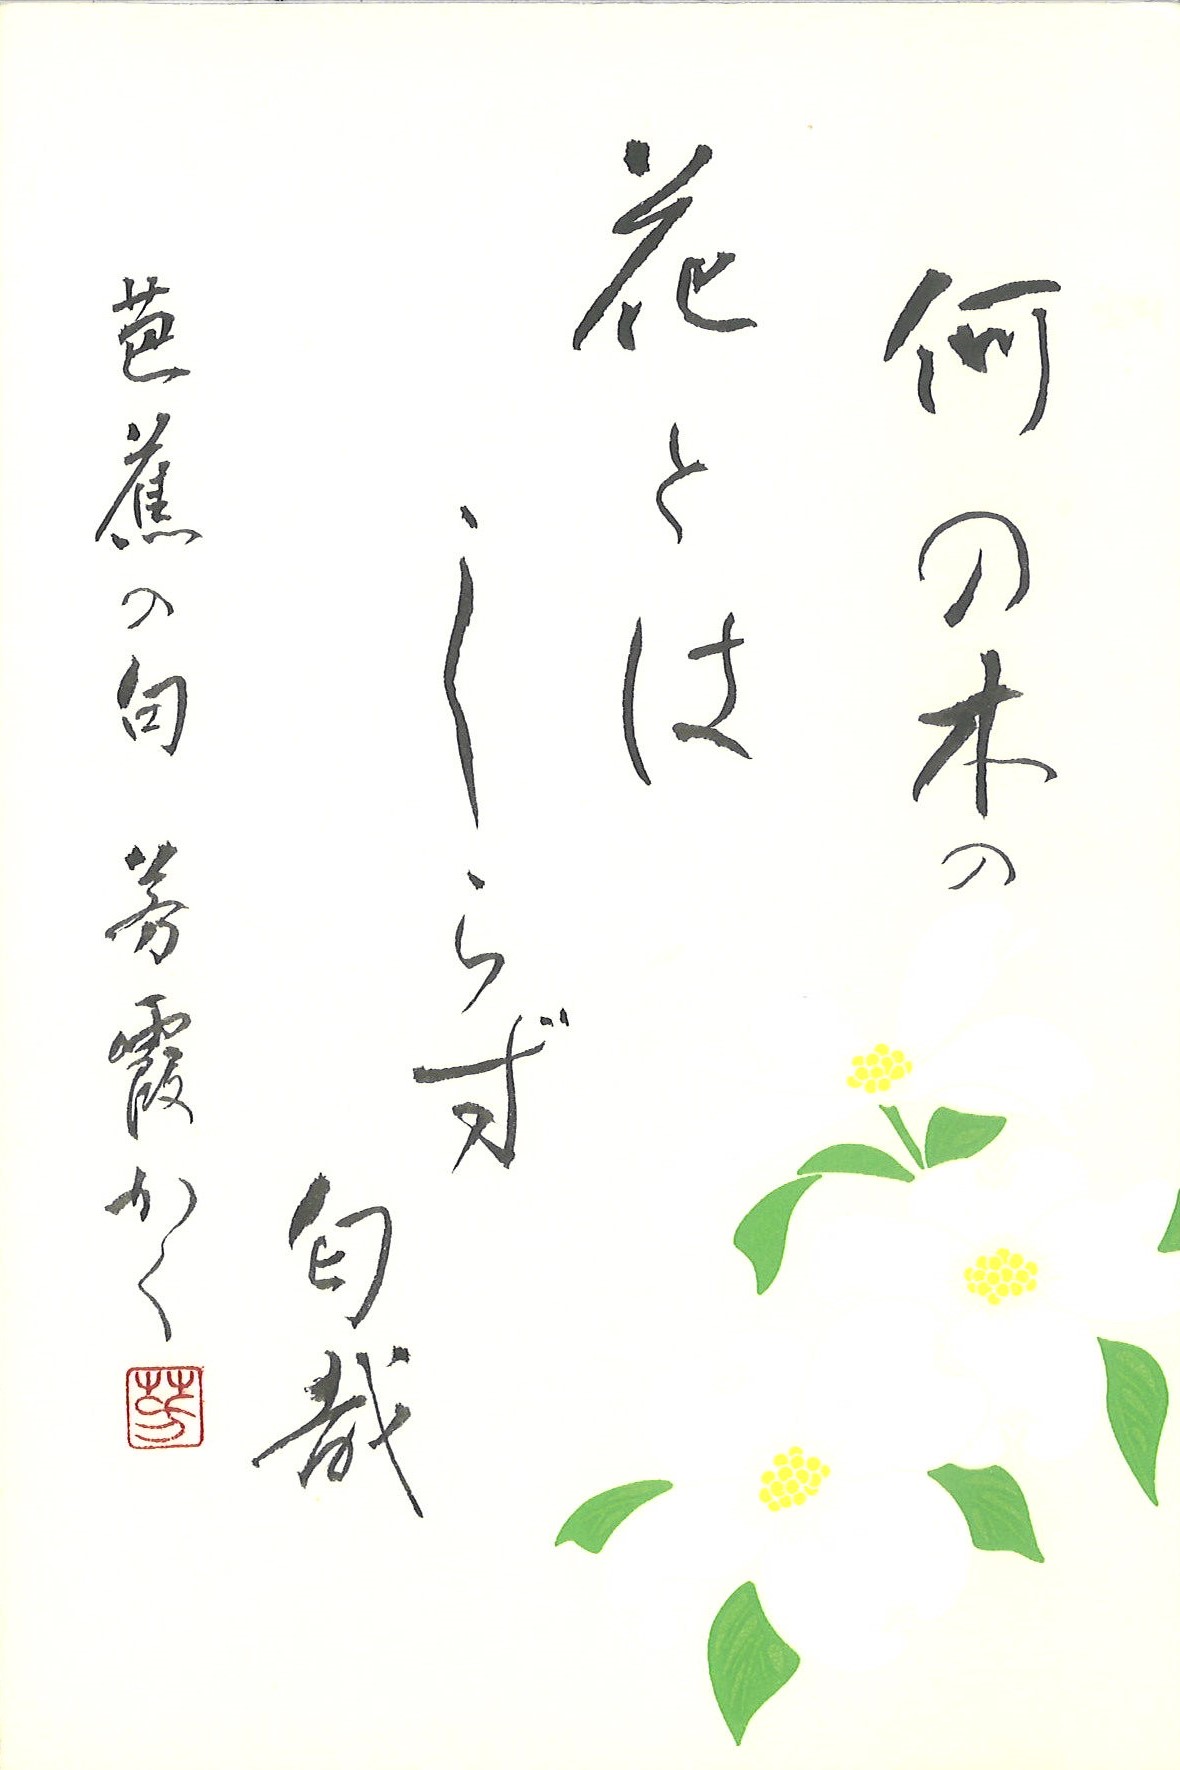 何の木の
花とは
しらず
匂哉
芭蕉の句 芳霞かく
芳